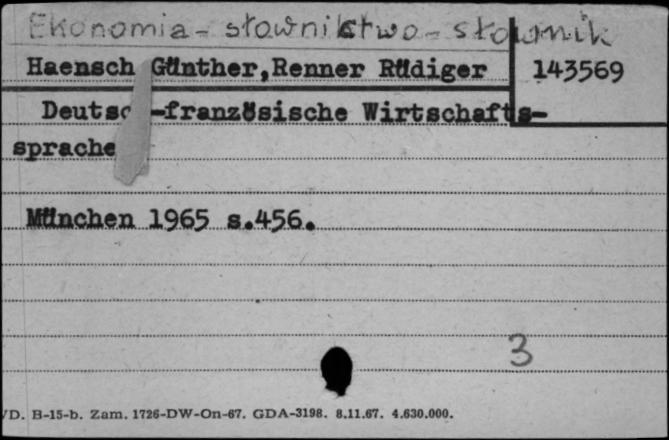 Ekonomia - słownictwo - słownik
Haensch Günther, Renner Rüdiger 143569
-französische Wirtschafts-
sprache
München 1965 s.456.
3
VD. B-15-b. Zam. 1726-DW-On-67. GDA-3198. 8.11.67. 4.630.000.